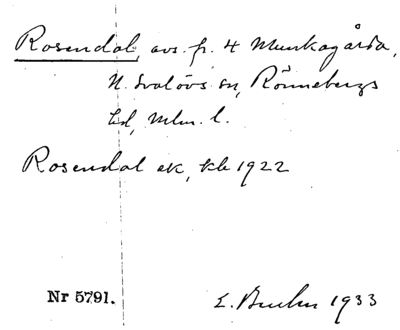 Rosendal, avs. fr. 4 Munkagårda,
N. Svalövs sn, Rönnebergs
hd, Mlm. l.
Rosendal ek, kb 1922
Nr 5791.
E. 1933